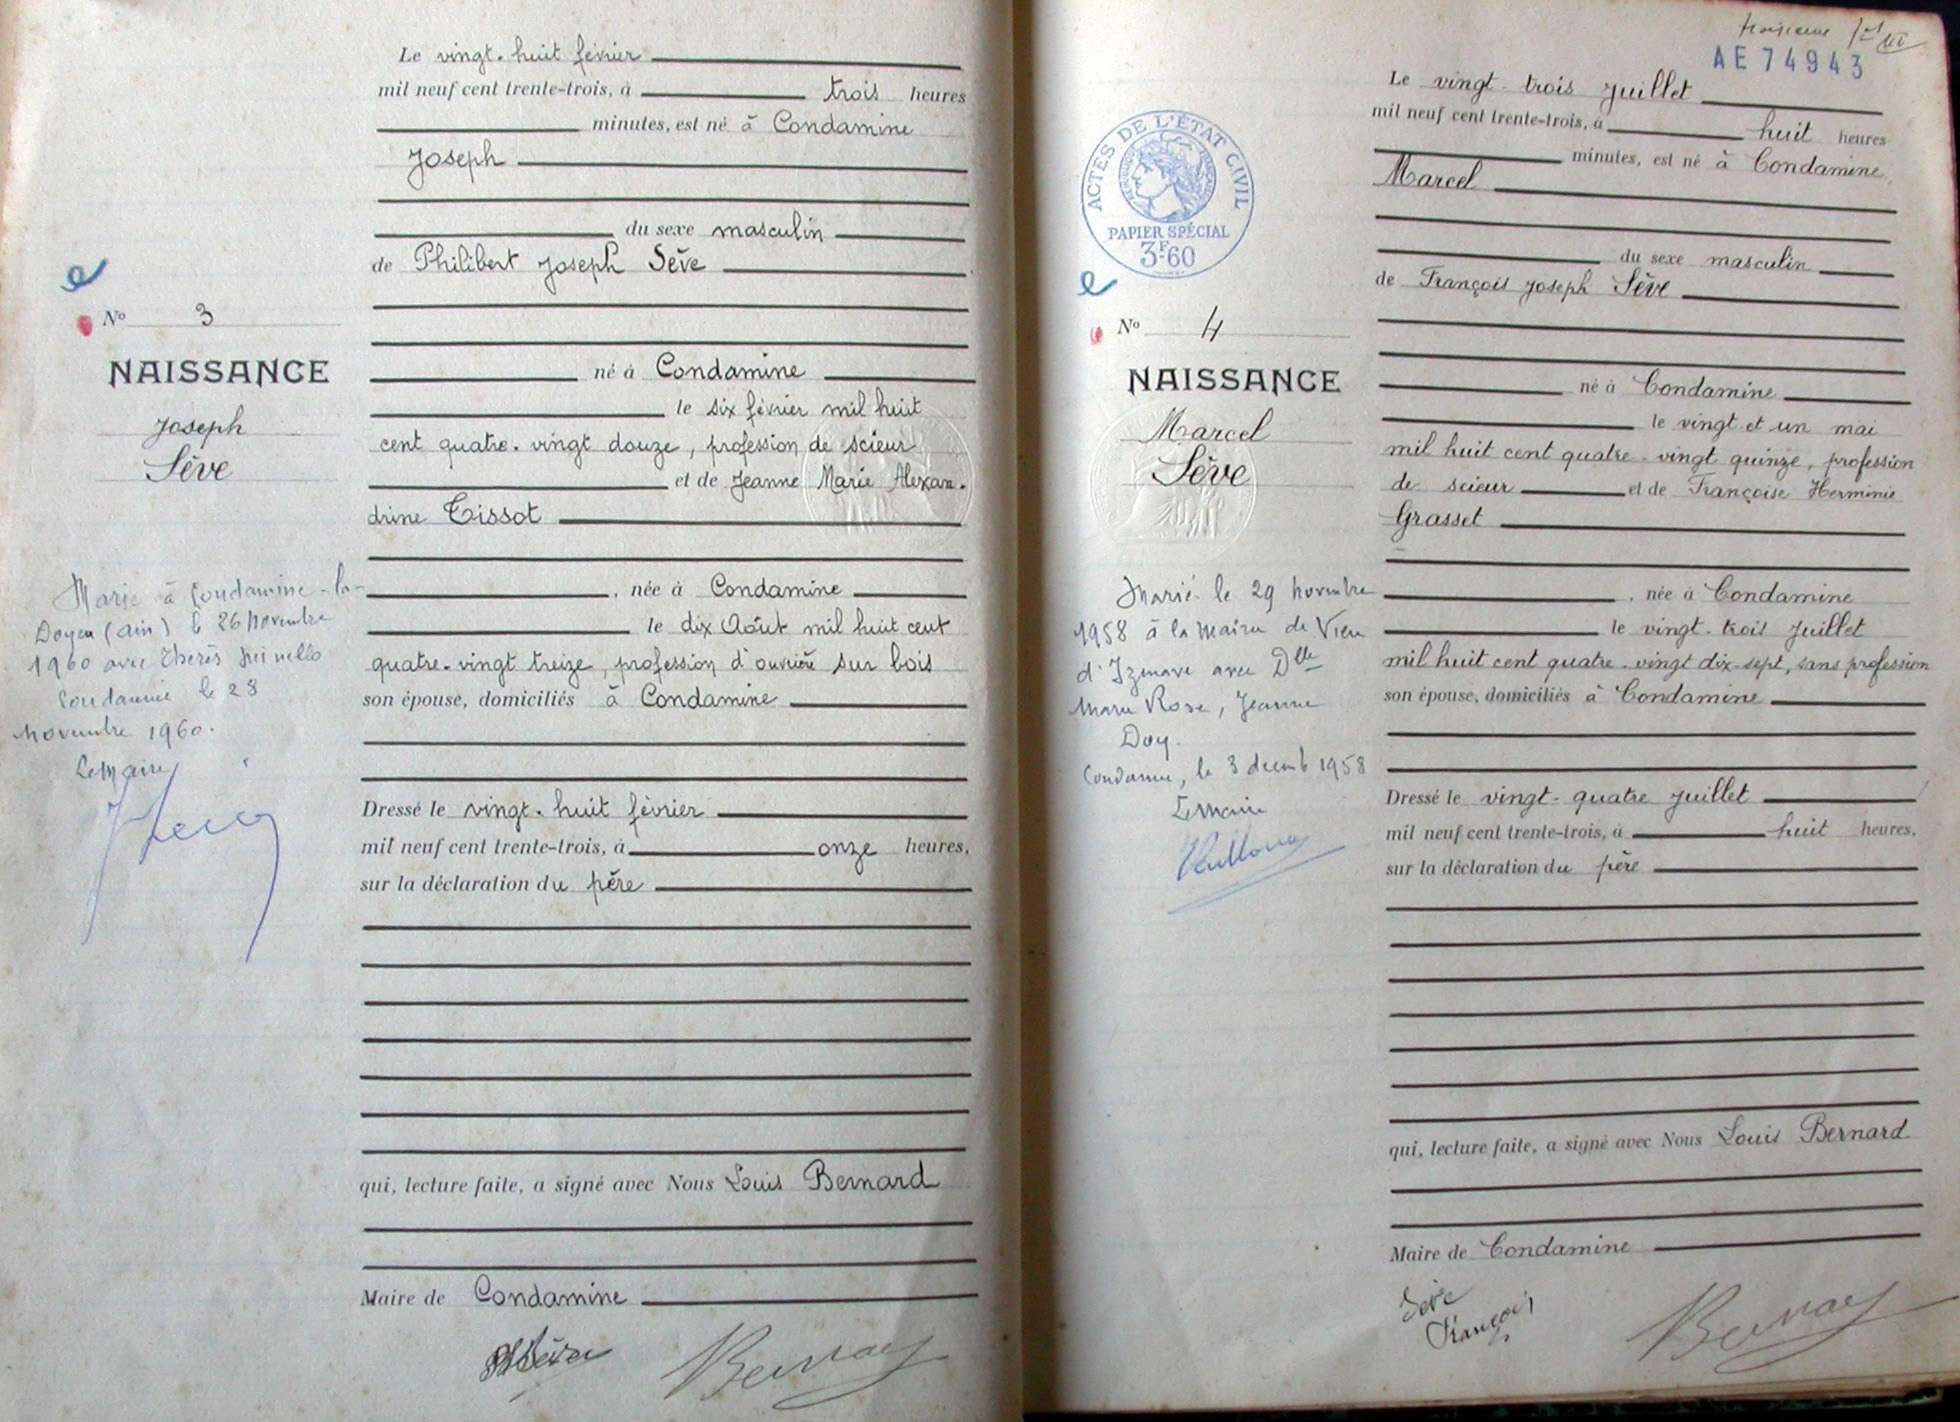 Le vingt-huit février
mil neuf cent trente-trois, à trois heures
minutes, est né à Condamine
Joseph
du sexe masculin
de Philibert Joseph Sève
No 3
NAISSANCE
Joseph
Sève
né à Condamine
le six février mil huit
cent quatre-vingt douze, profession de scieur
et de Jeanne Marie Alexan-
drine Tissot
Marié à Condamine-la-
Doye (Ain) le 26 novembre
1960 avec
Condamine le 28
novembre 1960.
Le Maire
, née à Condamine
le dix Août mil huit cent
quatre-vingt treize, profession d'ouvrière sur bois
son épouse, domiciliés à Condamine
Dressé le vingt-huit février
mil neuf cent trente-trois, à onze heures,
sur la déclaration du père
qui, lecture faite, a signé avec Nous Louis Bernard
Maire de Condamine
AE 74943
Le vingt-trois Juillet
mil neuf cent trente-trois, à huit heures
minutes, est né à Condamine
Marcel
ACTES DE L'ÉTAT CIVIL
PAPIER SPÉCIAL
3F60
du sexe masculin
de François Joseph Sève
No 4
NAISSANCE
Marcel
Sève
né à Condamine
le vingt et un mai
mil huit cent quatre-vingt quinze, profession
de scieur et de Françoise Herminie
Grasset
Marié le 29 novembre
1958 à la mairie de Vieu
d'Izenave avec Dlle
Marie Rose, Jeanne
Doy.
Condamine, le 3 décemb 1958
Le Maire
, née à Condamine
le vingt-trois Juillet
mil huit cent quatre-vingt dix-sept, sans profession
son épouse, domiciliés à Condamine
Dressé le vingt-quatre Juillet
mil neuf cent trente-trois, à huit heures,
sur la déclaration du père
qui, lecture faite, a signé avec Nous Louis Bernard
Maire de Condamine
Sève
François